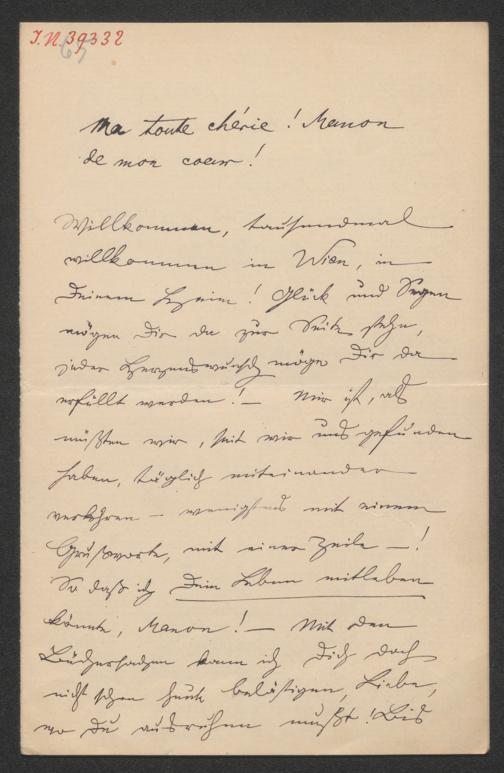 I.N. 39332
65
Ma toute chérie! Manon
de mon coeur!
Willkommen, tausendmal
willkommen in Wien, in
Deinem Heim! Glück und Segen
mögen Dir da zur Seite stehn,
jeder Herzenswunsch möge Dir da
erfüllt werden! — Mir ist, als
müßten wir, seit wir uns gefunden
haben, täglich miteinander
verkehren — wenigstens mit einem
Grußworte, mit einer Zeile —!
So daß ich Dein Leben mitleben
könnte, Manon! — Mit den
Büchersachen kann ich Dich doch
nicht schon heute belästigen, Liebe,
wo Du ausruhen mußt! Bis